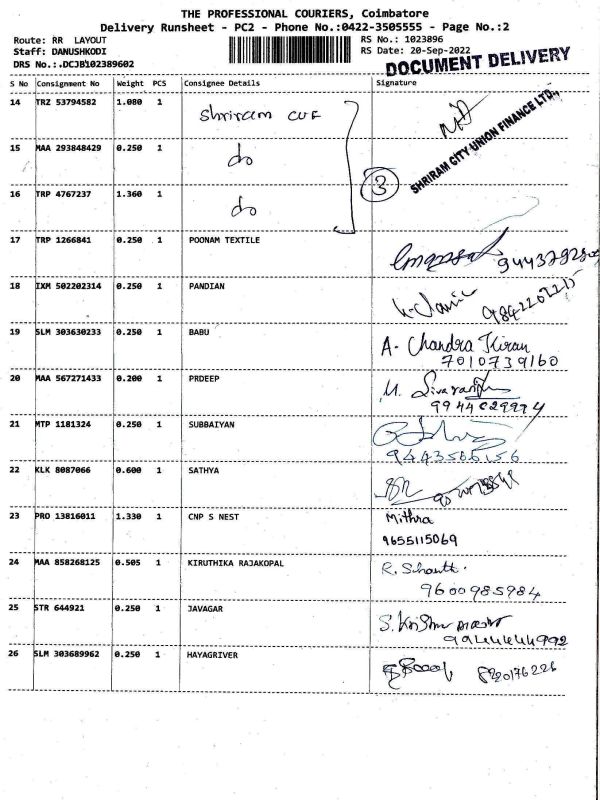 THE PROFESSIONAL COURIERS, Coimbatore
Delivery Runsheet - PC2 - Phone No.:0422-3505555 - Page No.:2
Route: RR LAYOUT RS No.: 1023896
Staff: DANUSHKODI RS Date: 20-Sep-2022
DRS No.:.DCJB102389602 DOCUMENT DELIVERY
S No Consignment No Weight PCS Consignee Details Signature
14 TRZ 53794582 1.080 1 Shriram CUF
SHRIRAM CITY UNION FINANCE LTD.,
15 MAA 293848429 0.250 1 do
3
16 TRP 4767237 1.360 1 do
17 TRP 1266841 0.250 1 POONAM TEXTILE
18 IXM 502202314 0.250 1 PANDIAN
19 SLM 303630233 0.250 1 BABU A. Chandra Kiran
7010739160
20 MAA 567271433 0.200 1 PRDEEP M.
21 MTP 1181324 0.250 1 SUBBAIYAN
22 KLK 8087066 0.600 1 SATHYA
23 PRO 13816011 1.330 1 CNP S NEST Mithra
9655115069
24 MAA 858268125 0.505 1 KIRUTHIKA RAJAKOPAL R.
9600985984
25 STR 644921 0.250 1 JAVAGAR S.
9944444992
26 SLM 303689962 0.250 1 HAYAGRIVER 8220176226